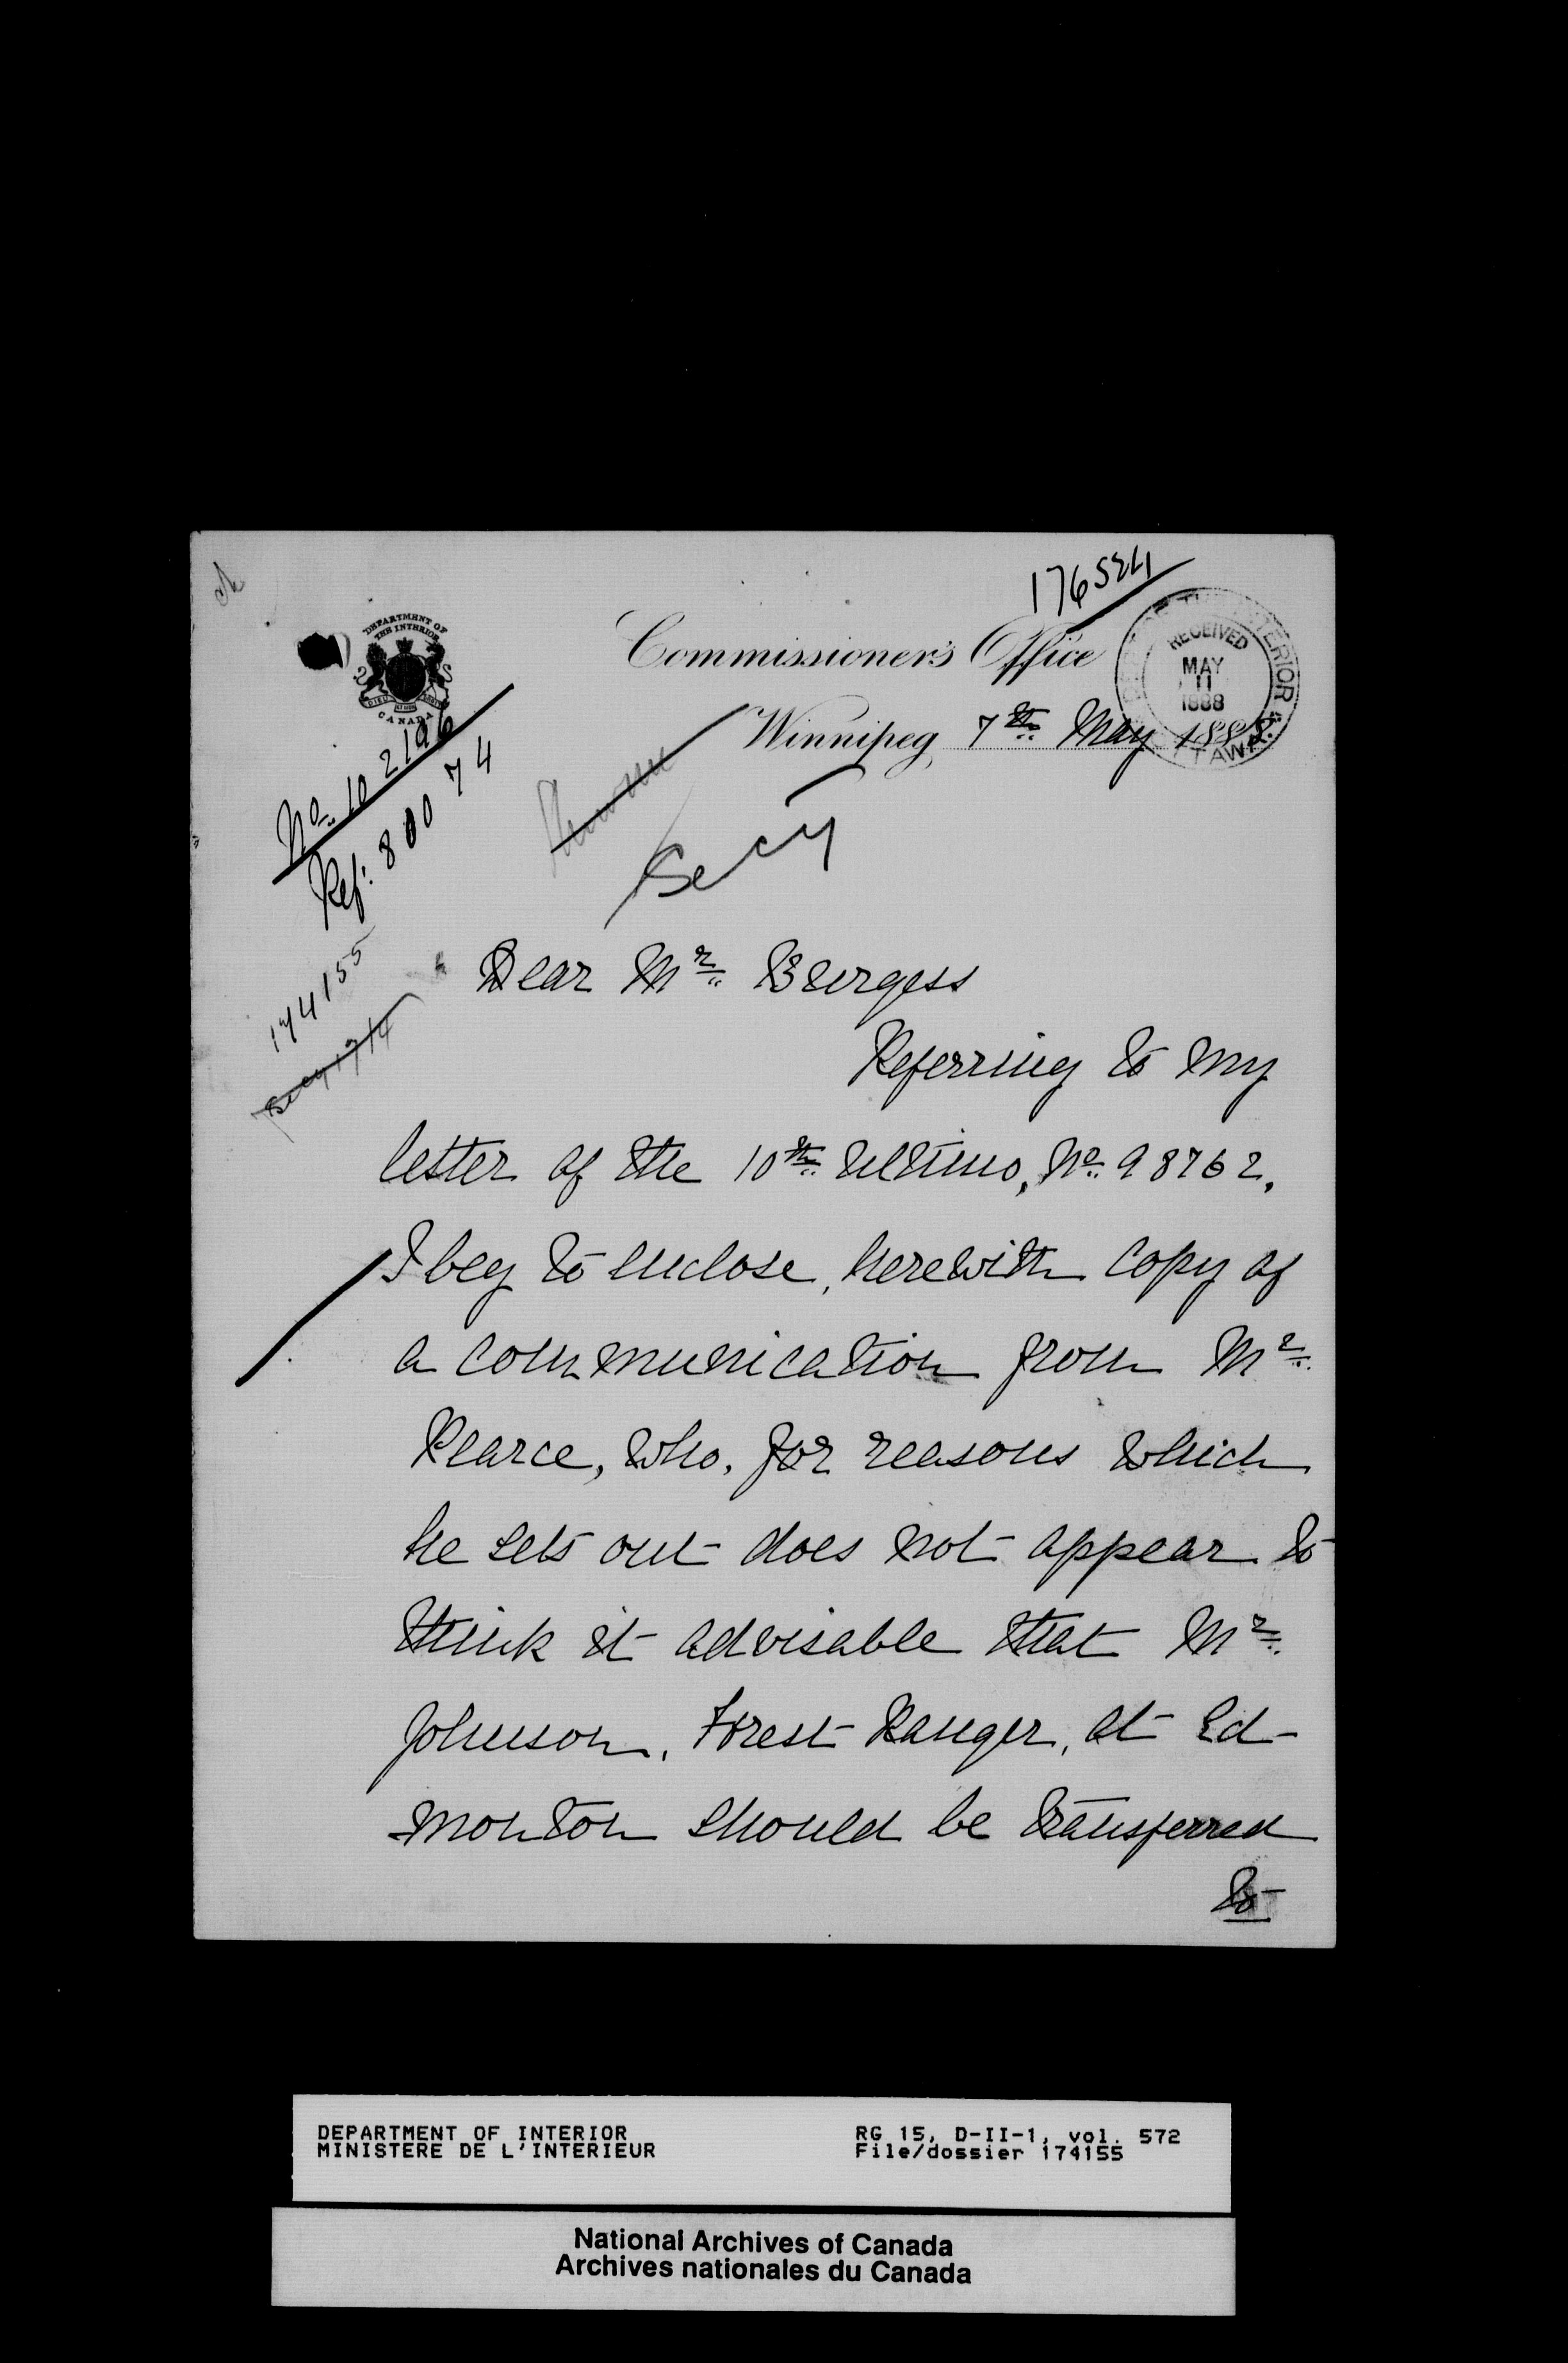 176524
DEPARTMENT OF
THE INTERIOR
CANADA
Commissioner's Office
RECEIVED
MAY
11
1888
Winnipeg, 7th May 1888.
No. 102196
Ref: 80074
Secy
174155
Dear Mr. Burgess
Referring to my
letter of the 10th ultimo, No. 98762,
I beg to enclose, herewith copy of
a communication from Mr.
Pearce, who, for reasons which
he sets out does not appear to
think it advisable that Mr.
Johnson, Forest Ranger, at Ed-
monton should be transferred
to
DEPARTMENT OF INTERIOR
MINISTERE DE L'INTERIEUR
RG 15, D-II-1, vol. 572
File/dossier 174155
National Archives of Canada
Archives nationales du Canada